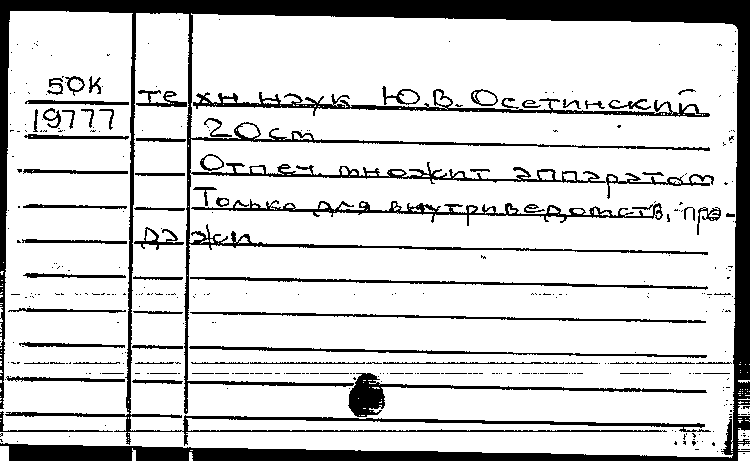 50К
техн. наук Ю.В. Осетинский
19777
20 см
Отпеч. множит. аппаратом.
Только для внутриведомств. про-
дажи.